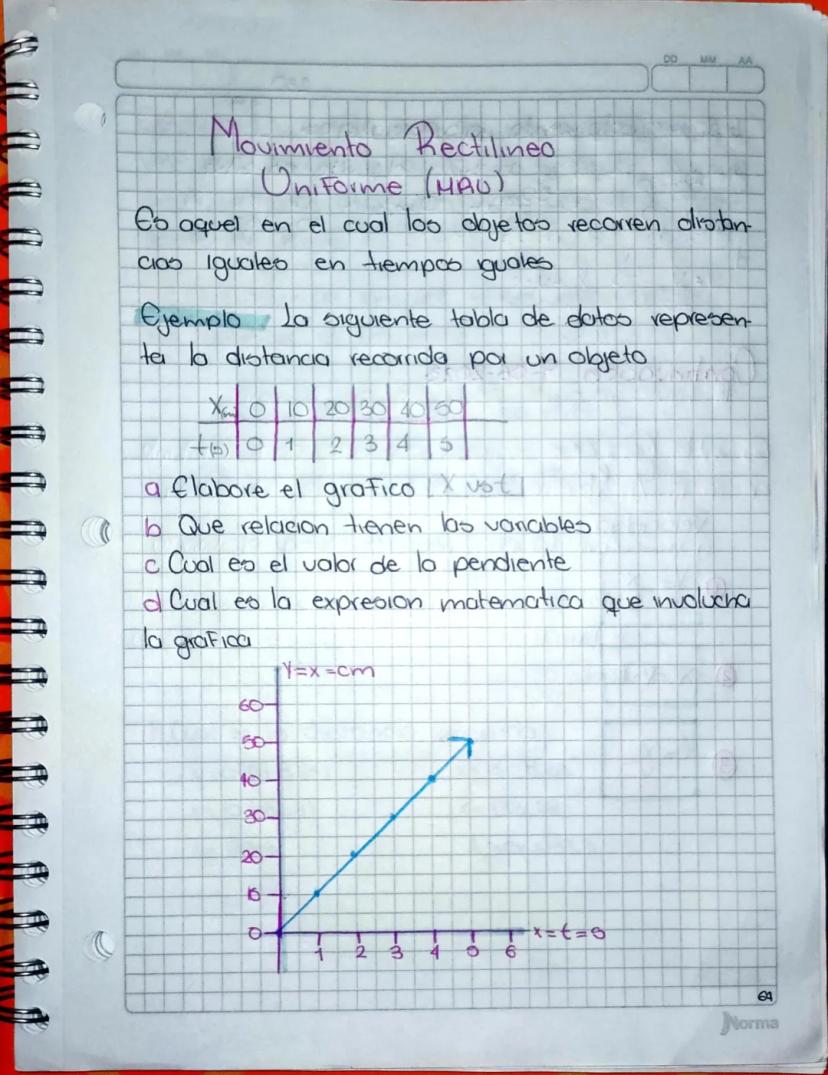 DD MM AA
Movimiento Rectilineo
Uniforme (MRU)
Es aquel en el cual los objetos recorren distan-
cias iguales en tiempos iguales
Ejemplo La siguiente tabla de datos represen-
ta la distancia recorrida por un objeto
X(m) 0 10 20 30 40 50
t(s) 0 1 2 3 4 5
a Elabore el grafico [X vs t]
b Que relacion tienen las variables
c Cual es el valor de la pendiente
d Cual es la expresion matematica que involucra
la grafica
Y=x=cm
60
50
40
30
20
10
0
x=t=s
1 2 3 4 5 6
Norma